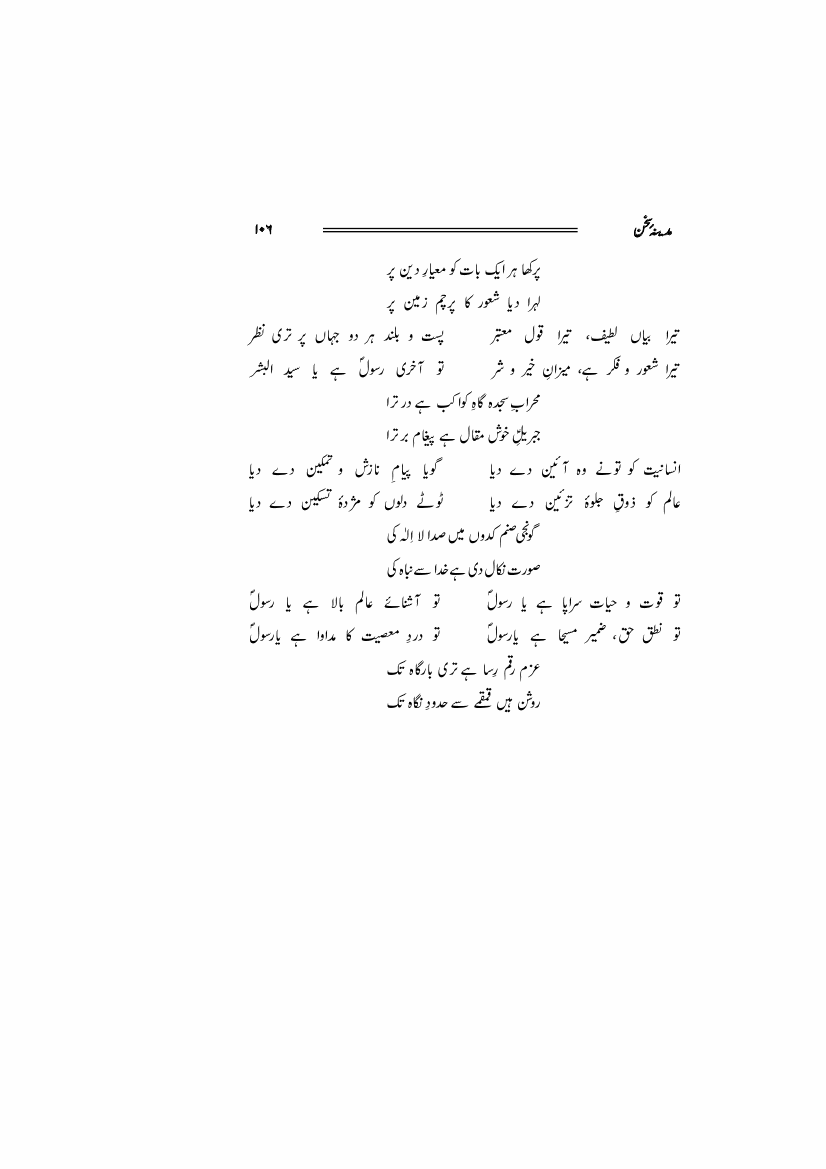 مدینۂ سخن ۱۰۶
پرکھا ہر ایک بات کو معیارِ دین پر
لہرا دیا شعور کا پرچم زمین پر
تیرا بیاں لطیف، تیرا قول معتبر پست و بلند ہر دو جہاں پر تری نظر
تیرا شعور و فکر ہے، میزانِ خیر و شر تو آخری رسولؐ ہے یا سید البشر
محرابِ سجدہ گاہِ کواکب ہے در ترا
جبریلِؑ خوش مقال ہے پیغام بر ترا
انسانیت کو تونے وہ آئین دے دیا گویا پیامِ نازش و تمکین دے دیا
عالم کو ذوقِ جلوۂ تزئین دے دیا ٹوٹے دلوں کو مژدۂ تسکین دے دیا
گونجی صنم کدوں میں صدا لا اِلٰہ کی
صورت نکال دی ہے خدا سے نباہ کی
تو قوت و حیات سراپا ہے یا رسولؐ تو آشنائے عالم بالا ہے یا رسولؐ
تو نطق حق، ضمیر مسیحا ہے یارسولؐ تو دردِ معصیت کا مداوا ہے یارسولؐ
عزم رقم رِسا ہے تری بارگاہ تک
روشن ہیں قمقمے سے حدودِ نگاہ تک